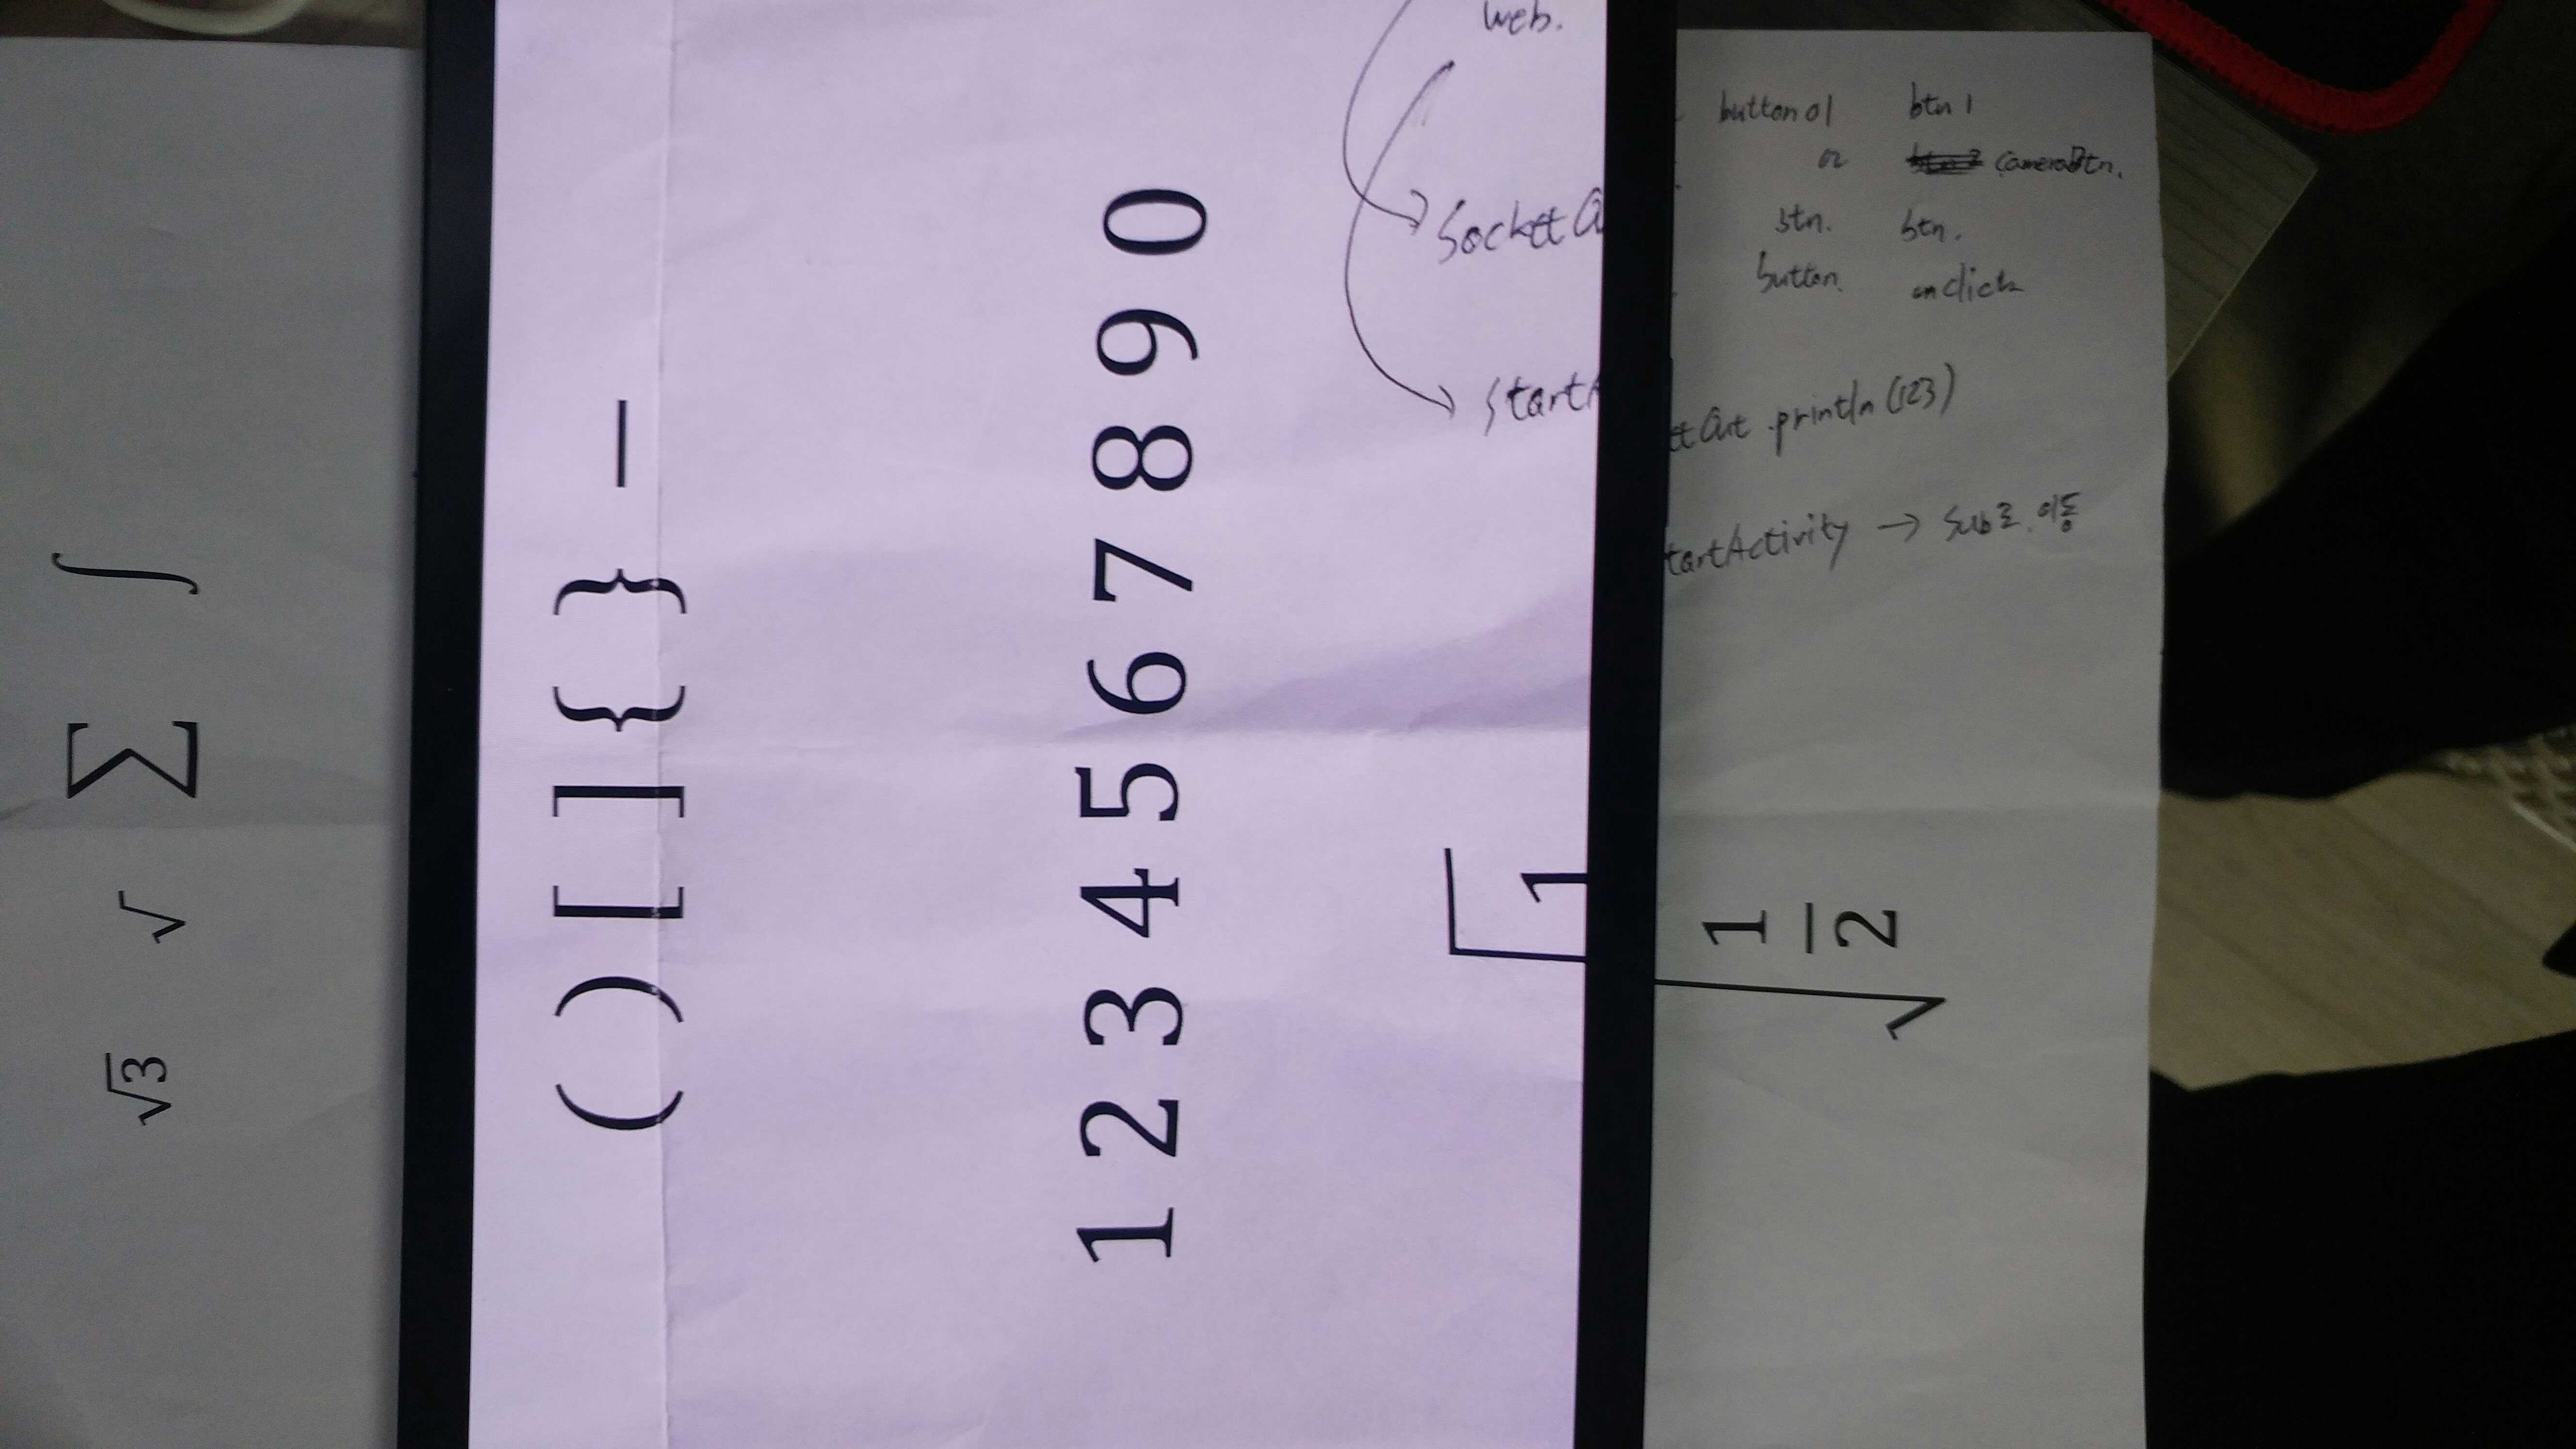 √3 √ ∑ ∫
( ) [ ] { } –
1 2 3 4 5 6 7 8 9 0
√1
√1/2
web.
SockettO
startA
button01 btn1
or cameraBtn.
btn. btn.
button. onclick
ttOut.println(123)
tartActivity → sub로 이동